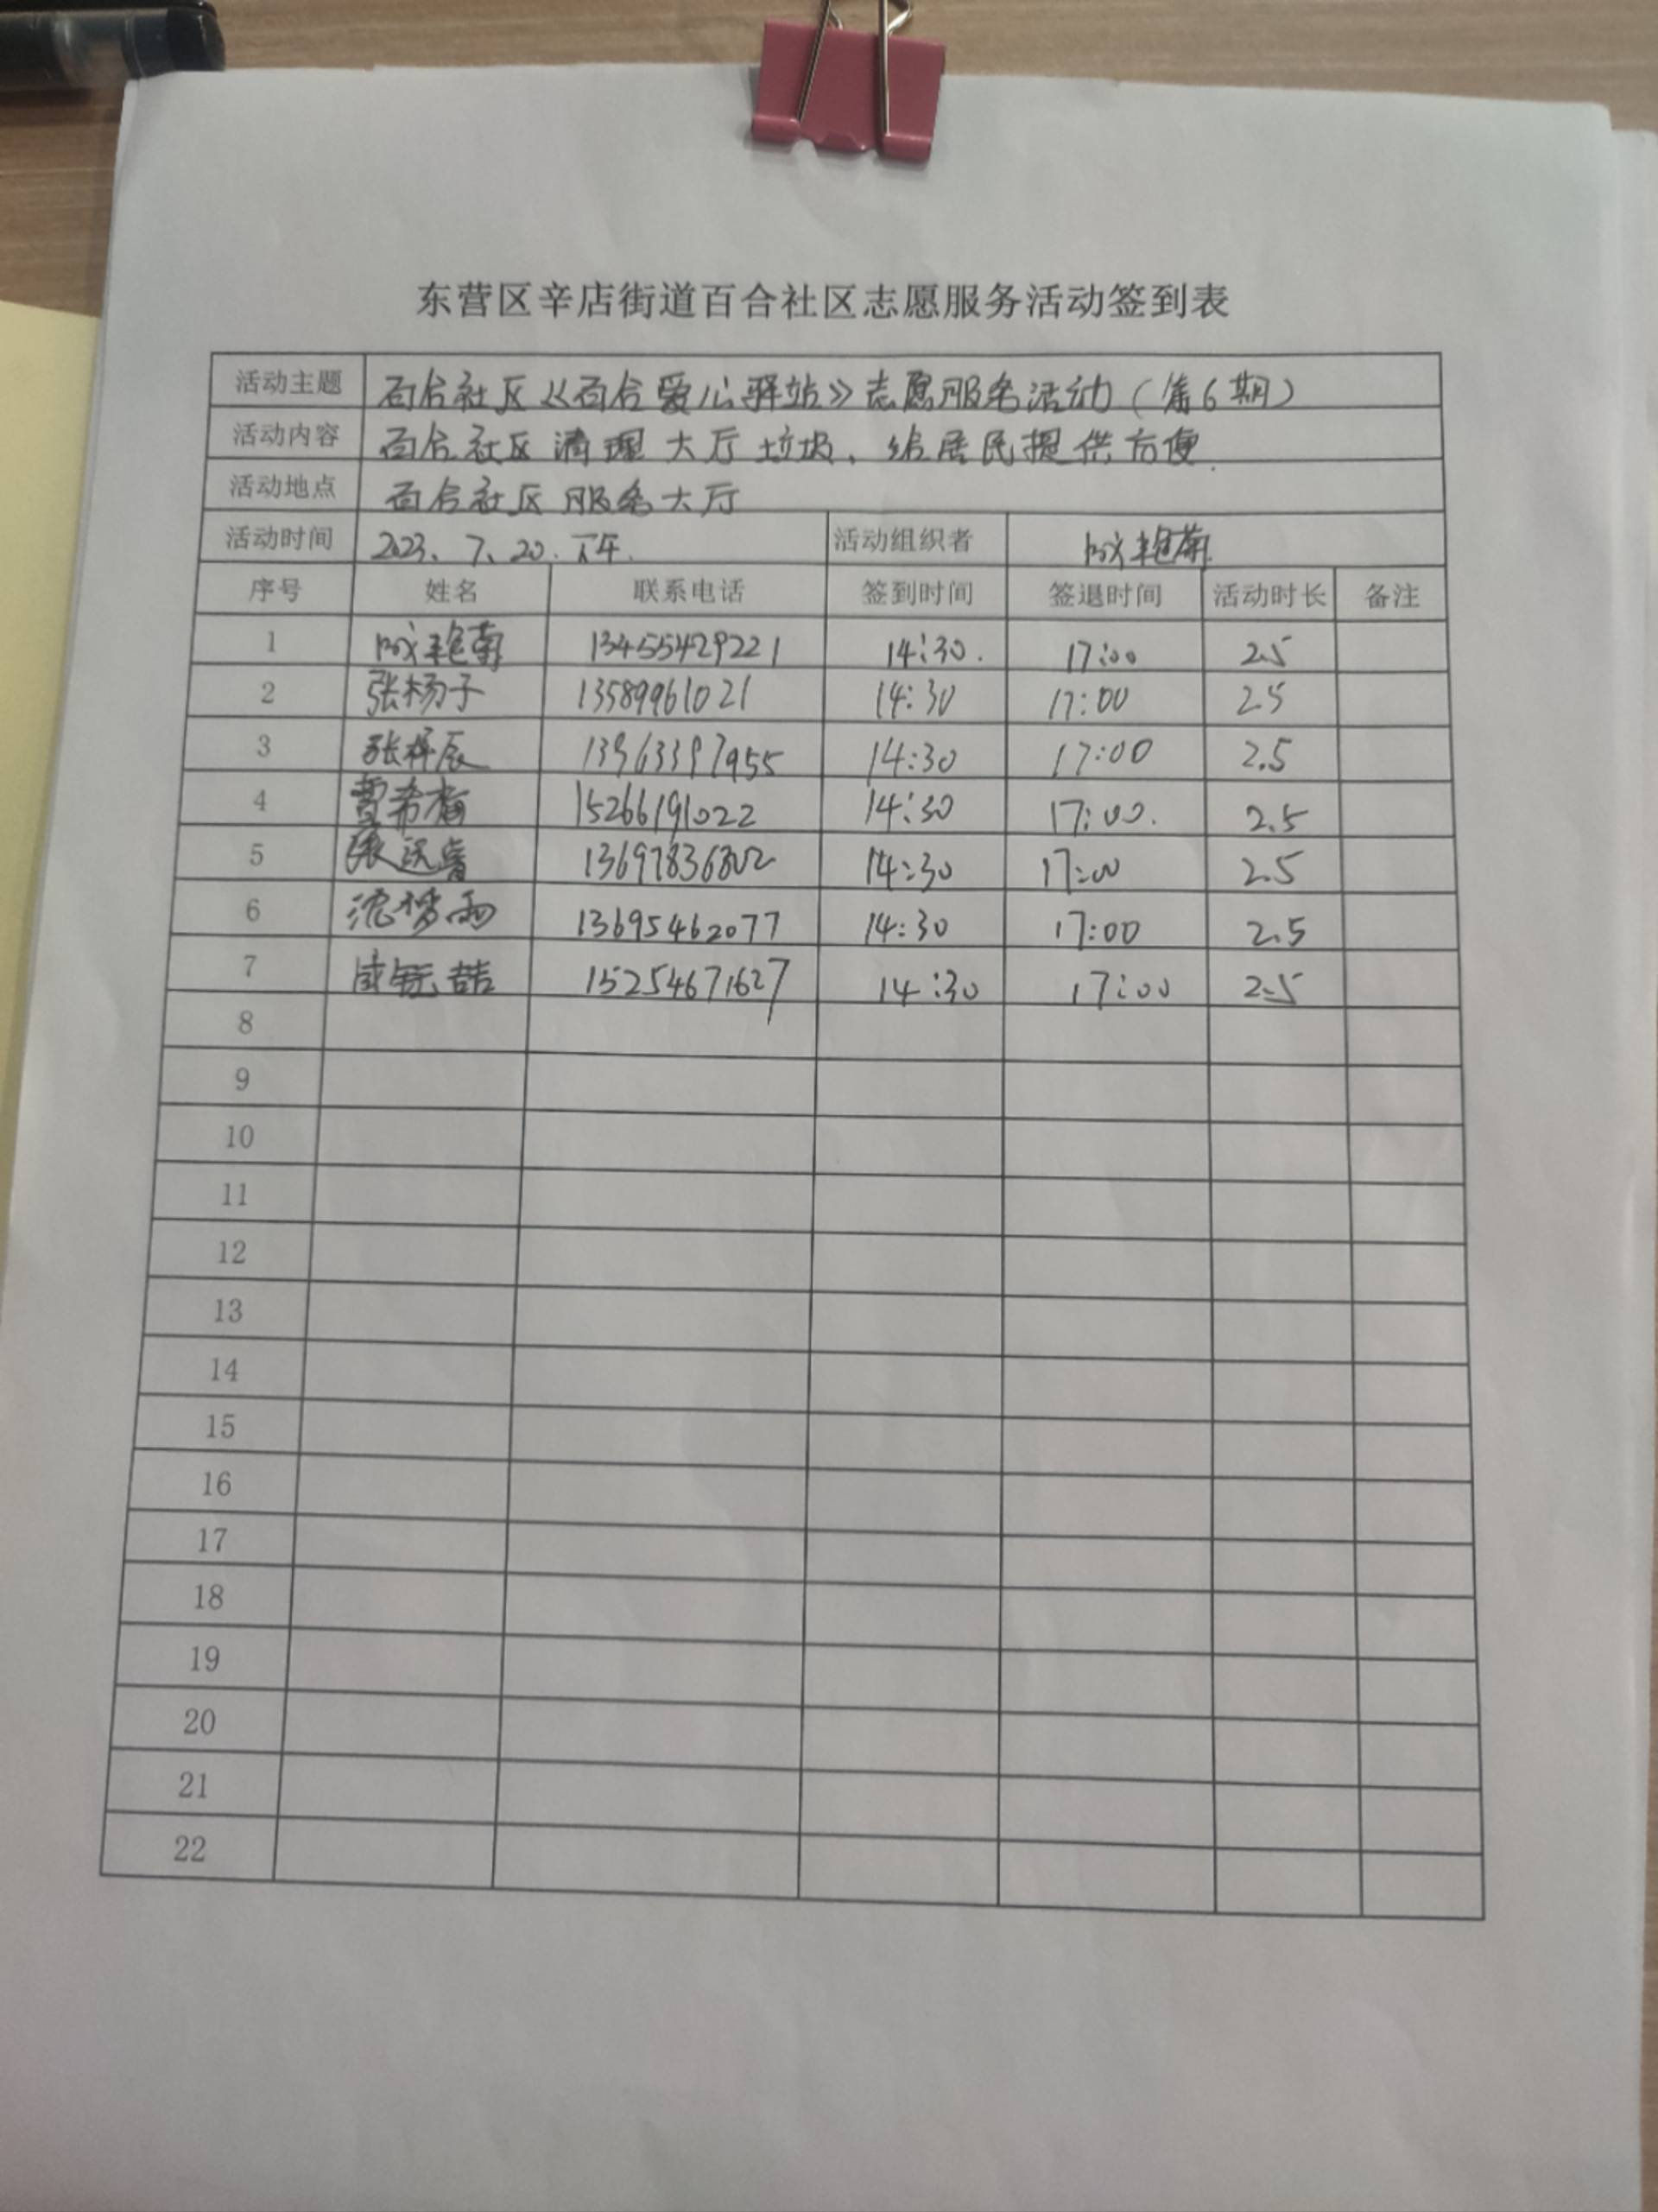 东营区辛店街道百合社区志愿服务活动签到表
活动主题 百合社区《百合爱心驿站》志愿服务活动(第6期)
活动内容 百合社区清理大厅垃圾、给居民提供方便.
活动地点 百合社区服务大厅
活动时间 2023、7、20.下午. 活动组织者
序号 姓名 联系电话 签到时间 签退时间 活动时长 备注
1 13455429221 14:30. 17:00 2.5
2 张杨子 13589961021 14:30 17:00 2.5
3 张梓辰 13963397955 14:30 17:00 2.5
4 15266191022 14:30 17:00. 2.5
5 14:30 17:00 2.5
6 沈梦雨 13695462077 14:30 17:00 2.5
7 15254671627 14:30 17:00 2.5
8
9
10
11
12
13
14
15
16
17
18
19
20
21
22